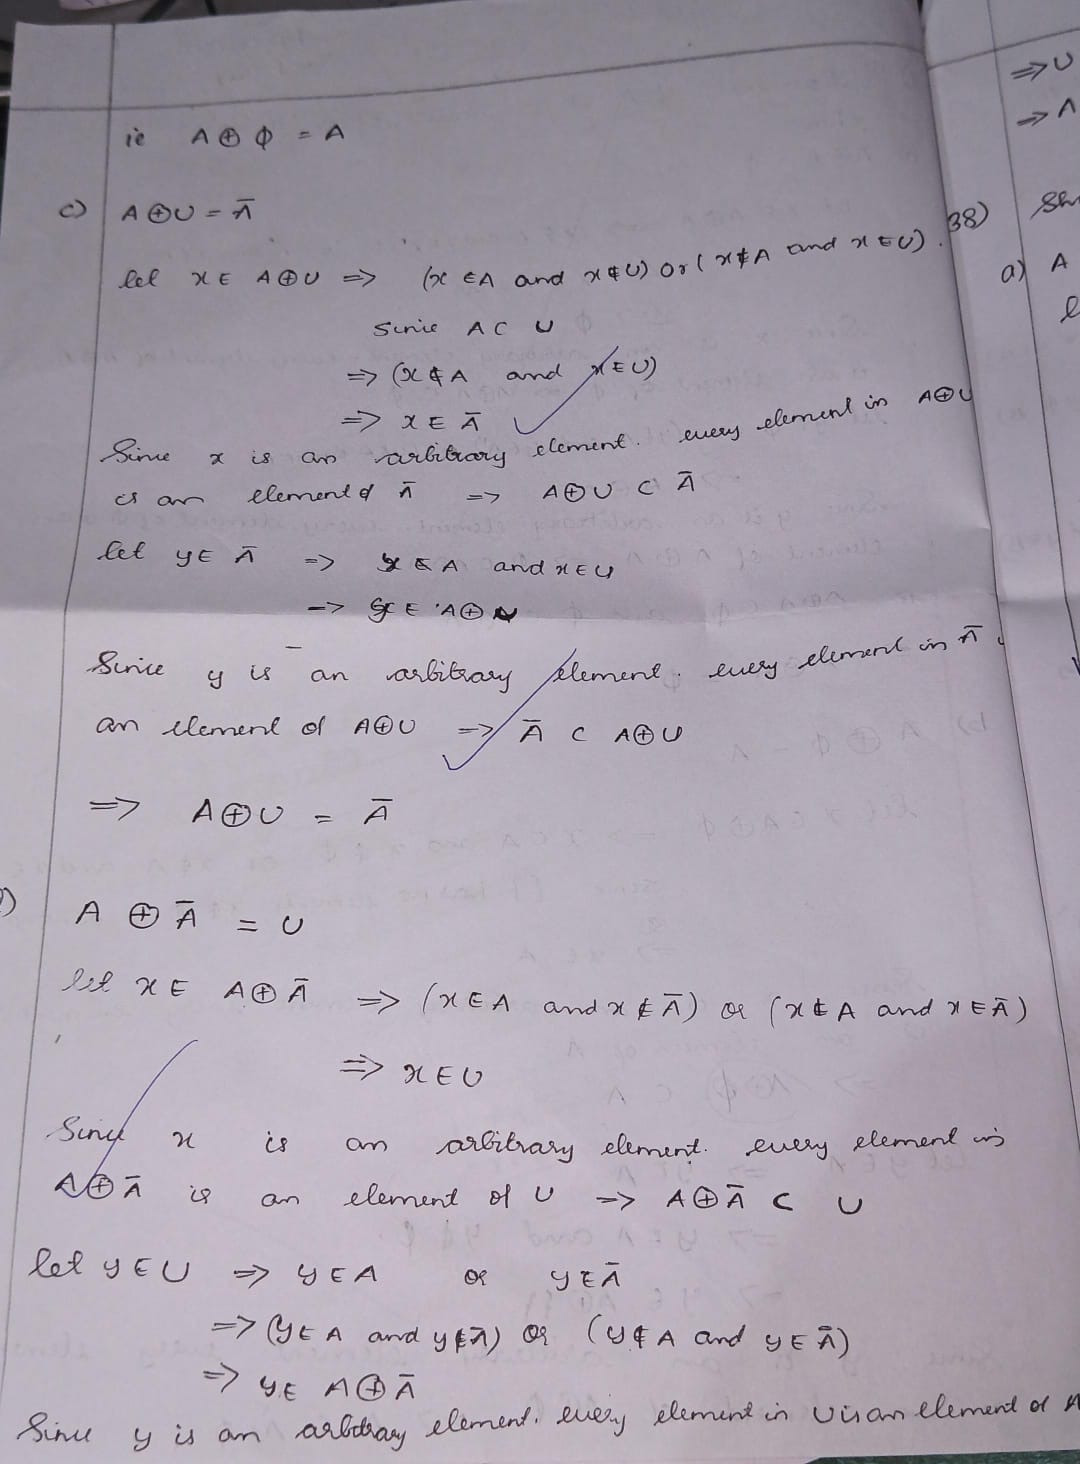 ie A ⊕ ϕ = A
c) A ⊕ U = Ā
let x ∈ A ⊕ U ⇒ (x ∈ A and x ∉ U) Or (x ∉ A and x ∈ U).
Sinie A ⊂ U
⇒ (x ∉ A and x ∈ U)
⇒ x ∈ Ā
Since x is an arbitrary element. every element in A ⊕ U
is an element of Ā ⇒ A ⊕ U ⊂ Ā
let y ∈ Ā ⇒ A and x ∈ U
⇒ ∈ A ⊕
Since y is an arbitrary element. every element in Ā
an element of A ⊕ U ⇒ Ā ⊂ A ⊕ U
⇒ A ⊕ U = Ā
) A ⊕ Ā = U
let x ∈ A ⊕ Ā ⇒ (x ∈ A and x ∉ Ā) or (x ∉ A and x ∈ Ā)
⇒ x ∈ U
Since x is an arbitrary element. every element in
A ⊕ Ā is an element of U ⇒ A ⊕ Ā ⊂ U
let y ∈ U ⇒ y ∈ A or y ∈ Ā
⇒ (y ∈ A and y ∉ Ā) or (y ∉ A and y ∈ Ā)
⇒ y ∈ A ⊕ Ā
Since y is an arbitrary element. every element in U is an element of A
⇒ U
⇒ A
38) Sh
a) A
l